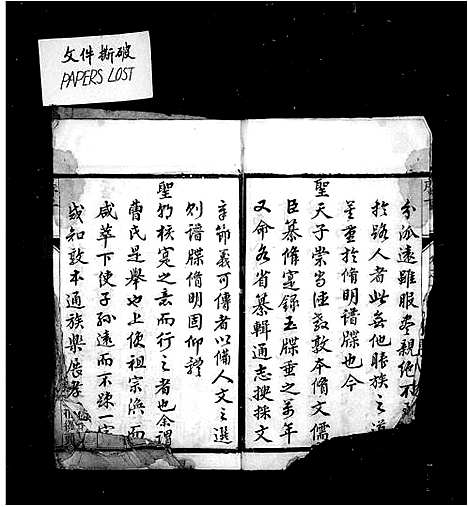 文件撕破
PAPERS LOST
分派遠雖服盡親絶不
於路人者此無他賬族之道
莫重於脩明譜牒也今
聖天子崇尚經教敦本脩文儒
臣纂脩寔録玉牒垂之萬年
又命各省纂輯通志搜採文
章節義可傳者以備人文之選
則譜牒脩明固仰體
聖朝核寔之意而行之者也余謂
曹氏是舉也上使祖宗渙而
咸萃下使子孫遠而不踈一宗
咸知敦本通族樂展孝